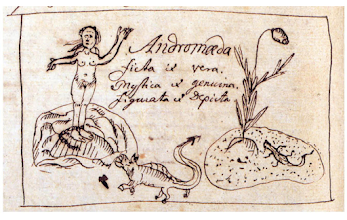 Andromeda
ficta & vera.
mystica & genuina.
figurata & depicta.